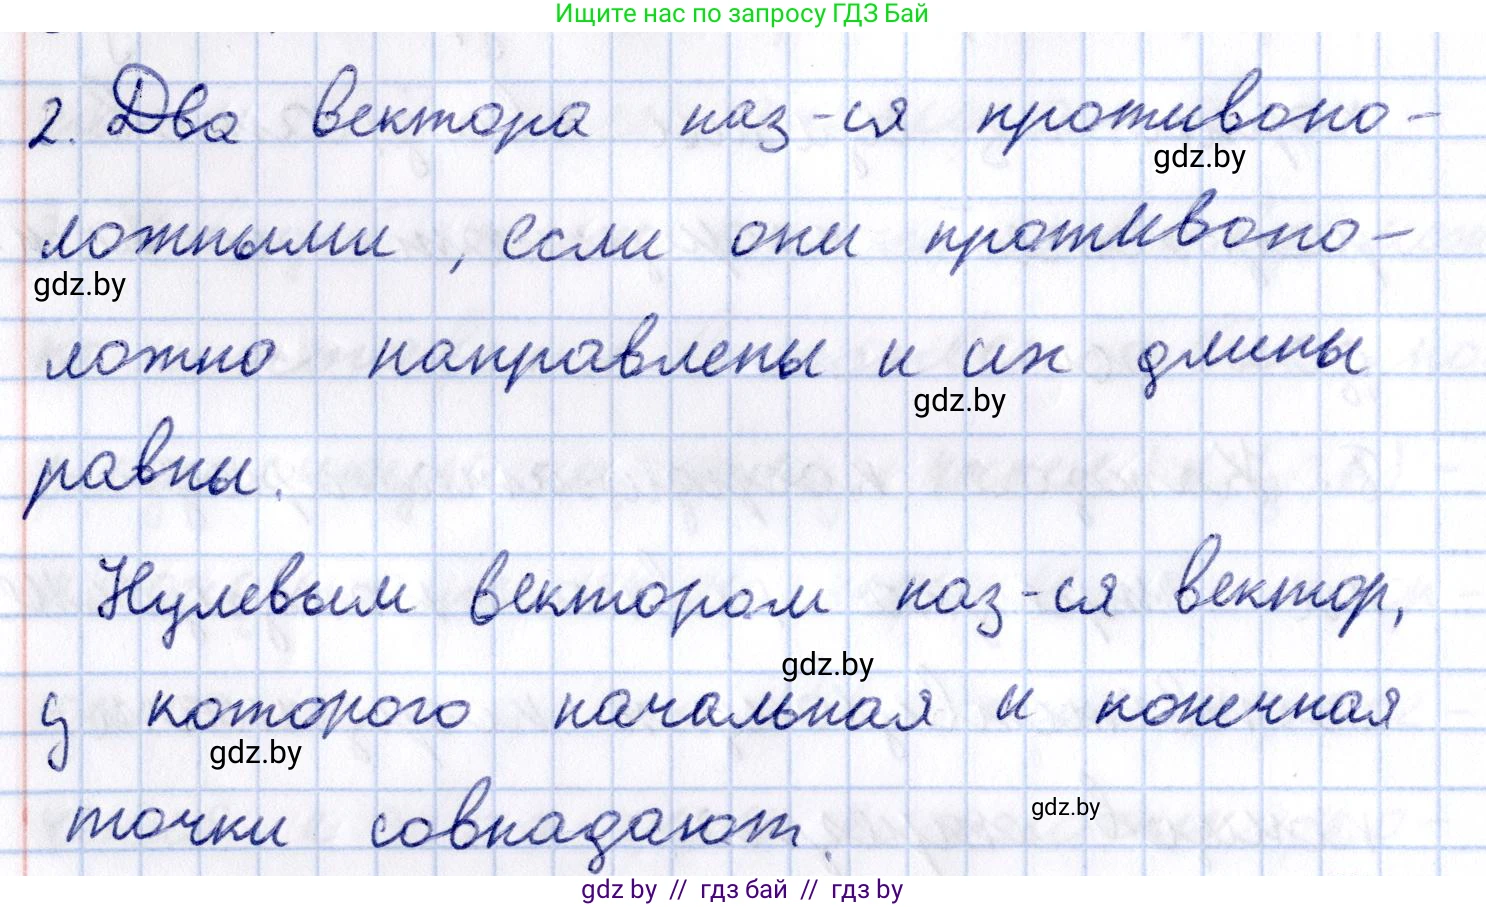 Ищите нас по запросу ГДЗ Бай
2. Два вектора наз-ся противопо-
gdz.by
ложными, если они противопо-
gdz.by
ложно направлены и их длины
gdz.by
равны.
Нулевым вектором наз-ся вектор,
gdz.by
у которого начальная и конечная
gdz.by
точки совпадают.
gdz.by
gdz by // гдз бай // гдз by